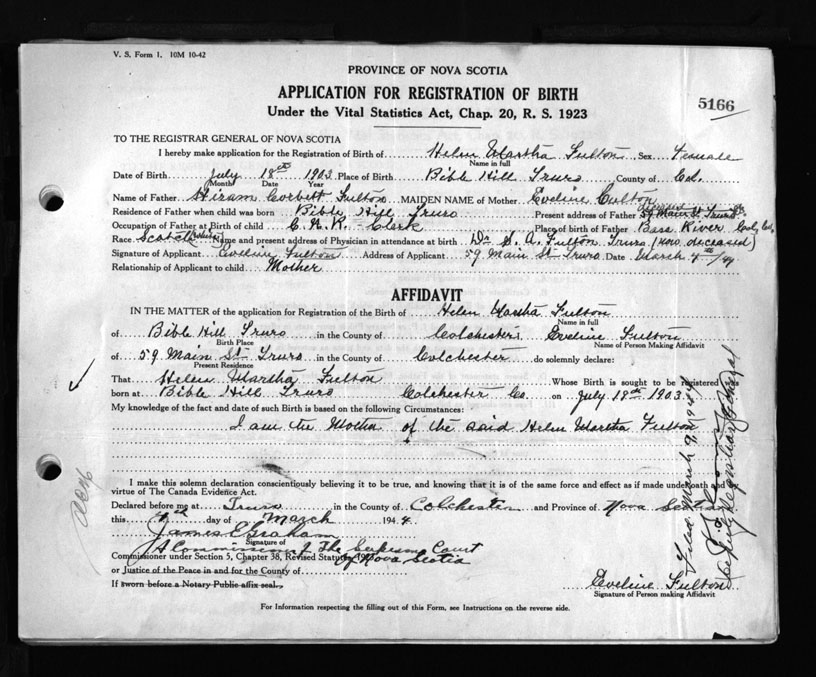 V. S. Form 1. 10M 10-42
PROVINCE OF NOVA SCOTIA
APPLICATION FOR REGISTRATION OF BIRTH
5166
Under the Vital Statistics Act, Chap. 20, R. S. 1923
TO THE REGISTRAR GENERAL OF NOVA SCOTIA
I hereby make application for the Registration of Birth of Helen Martha Fulton, Sex Female
Name in full
Date of Birth July 18th 1903 Place of Birth Bible Hill Truro County of Col.
Month Date Year
Name of Father Hiram Corbett Fulton MAIDEN NAME of Mother Eveline Fulton
Residence of Father when child was born Bible Hill Truro Present address of Father 59 Main St Truro
Occupation of Father at Birth of child C.N.R. Clerk Place of birth of Father Bass River Col. Co.
Race Scotch Name and present address of Physician in attendance at birth Dr S. A. Fulton Truro (now deceased)
Signature of Applicant Eveline Fulton Address of Applicant 59 Main St Truro Date March 4th/44
Relationship of Applicant to child Mother
AFFIDAVIT
IN THE MATTER of the application for Registration of the Birth of Helen Martha Fulton
Name in full
of Bible Hill Truro in the County of Colchester Eveline Fulton
Birth Place Name of Person Making Affidavit
of 59 Main St Truro in the County of Colchester do solemnly declare:
Present Residence
That Helen Martha Fulton Whose Birth is sought to be registered
born at Bible Hill Truro Colchester Co. on July 18th 1903
My knowledge of the fact and date of such Birth is based on the following Circumstances:
I am the Mother of the said Helen Martha Fulton
I make this solemn declaration conscientiously believing it to be true, and knowing that it is of the same force and effect as if made under oath and
virtue of The Canada Evidence Act.
Declared before me at Truro in the County of Colchester and Province of Nova Scotia
this 4th day of March 1944
James E Graham
Signature of
A Commissioner of The Supreme Court
Commissioner under Section 5, Chapter 38, Revised Statutes, of Nova Scotia
or Justice of the Peace in and for the County of
If sworn before a Notary Public affix seal.
Eveline Fulton
Signature of Person making Affidavit
For Information respecting the filling out of this Form, see Instructions on the reverse side.
Filed March 9th 1944
Deputy Registrar General